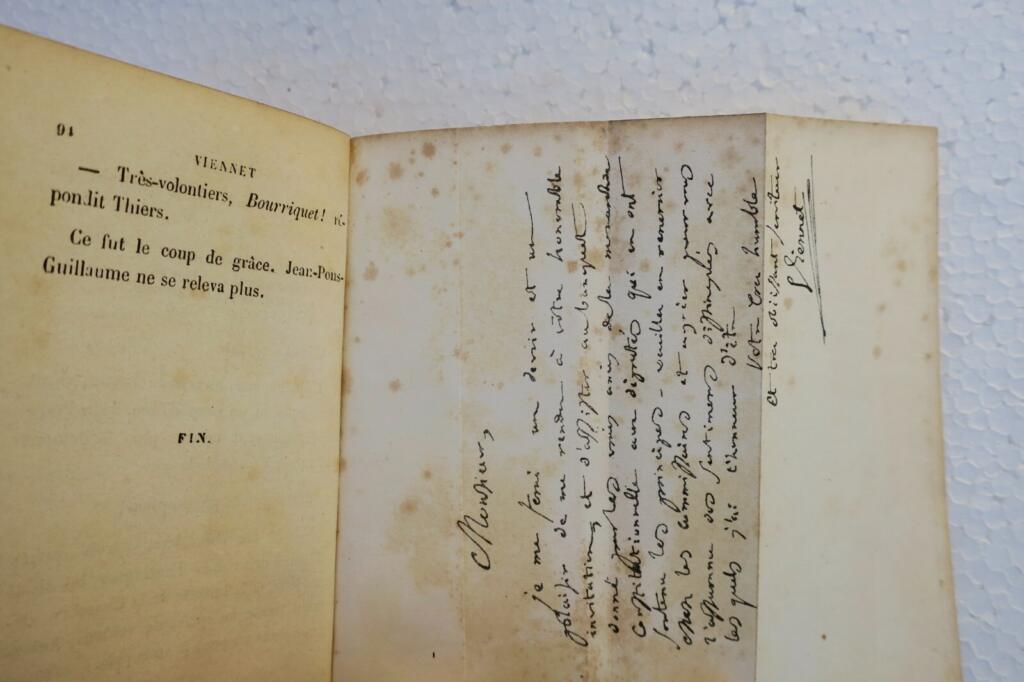 94
VIENNET
— Très-volontiers, Bourriquet! ré-
pondit Thiers.
Ce fut le coup de grâce. Jean-Pons-
Guillaume ne se releva plus.
FIN.
Monsieur,
je me ferai un devoir et un
plaisir de me rendre à votre honorable
invitation, et d'assister au banquet
donné par les vrais amis de la monarchie
Constitutionnelle aux députés qui en ont
soutenu les principes. veuillez en remercier
MM les Commissaires et agréer pour vous
l'assurance des sentiments distingués avec
les quels j'ai l'honneur d'être
Votre très humble
et très obéissant serviteur
Viennet